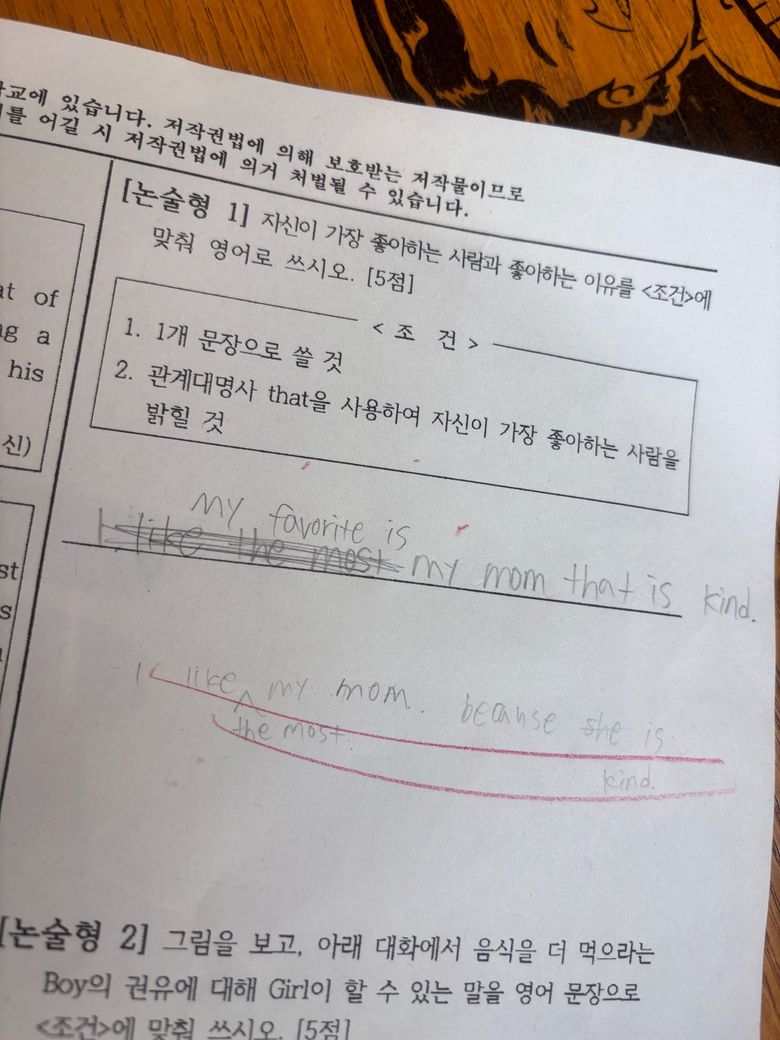 학교에 있습니다. 저작권법에 의해 보호받는 저작물이므로
를 어길 시 저작권법에 의거 처벌될 수 있습니다.
at of
ng a
his
신)
st
s
[논술형 1] 자신이 가장 좋아하는 사람과 좋아하는 이유를 <조건>에
맞춰 영어로 쓰시오. [5점]
< 조 건 >
1. 1개 문장으로 쓸 것
2. 관계대명사 that을 사용하여 자신이 가장 좋아하는 사람을
밝힐 것
My favorite is
I like the most my mom that is kind.
I like my mom. because she is
the most.
kind.
[논술형 2] 그림을 보고, 아래 대화에서 음식을 더 먹으라는
Boy의 권유에 대해 Girl이 할 수 있는 말을 영어 문장으로
<조건>에 맞춰 쓰시오. [5점]